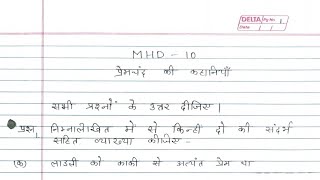 DELTA Pg No. 1
Date / /
MHD - 10
प्रेमचंद की कहानियाँ
सभी प्रश्नों के उत्तर दीजिए।
प्रश्न1 निम्नलिखित में से किन्हीं दो की संदर्भ
सहित व्याख्या कीजिए -
(क) लाडली को काकी से अत्यंत प्रेम था